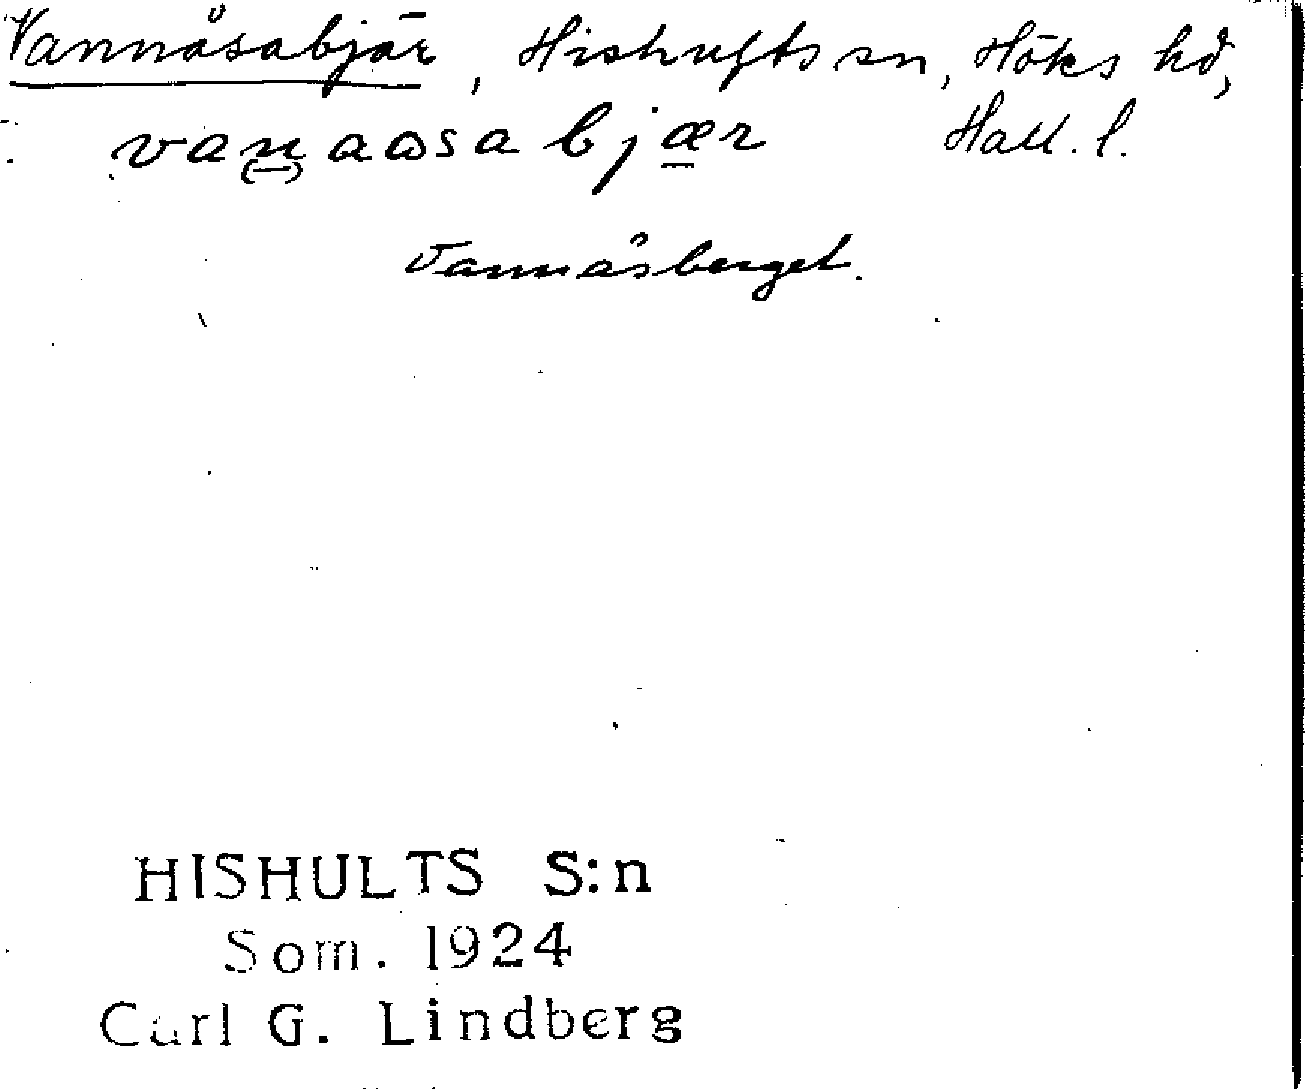 Vannåsabjär, Hishults sn, Höks hd,
vanaɷsabjær Hall. l.
Vannåsberget.
HISHULTS S:n
Som. 1924
Carl G. Lindberg